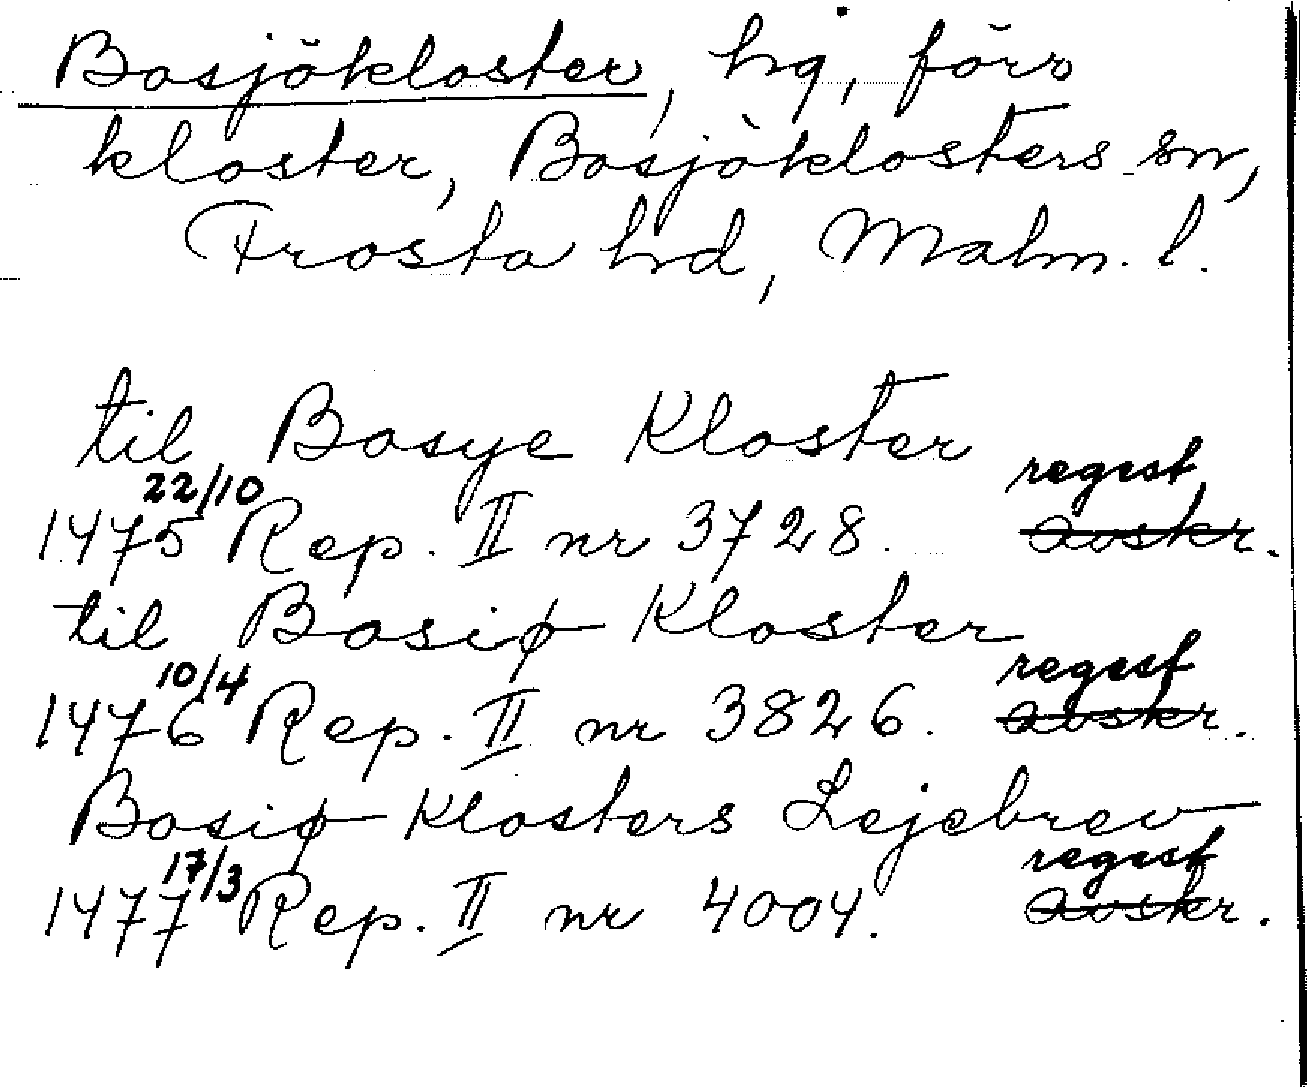 Bosjökloster, hg, förr
kloster, Bosjöklosters sn,
Frosta hd, Malm. l.
til Bosye Kloster
22/10 regest
1475 Rep. II nr 3728. avskr.
til Bosiø Kloster
10/4 regest
1476 Rep. II nr 3826. avskr.
Bosiø Klosters Lejebrev
17/3 regest
1477 Rep. II nr 4004. avskr.